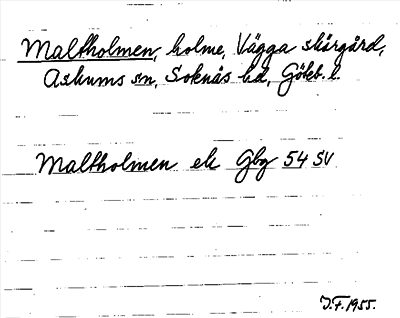 Maltholmen, holme, Vägga skärgård,
Askums sn, Soknäs hd, Göteb. l.
Maltholmen ek Gbg 54 SV
J.F. 1955.